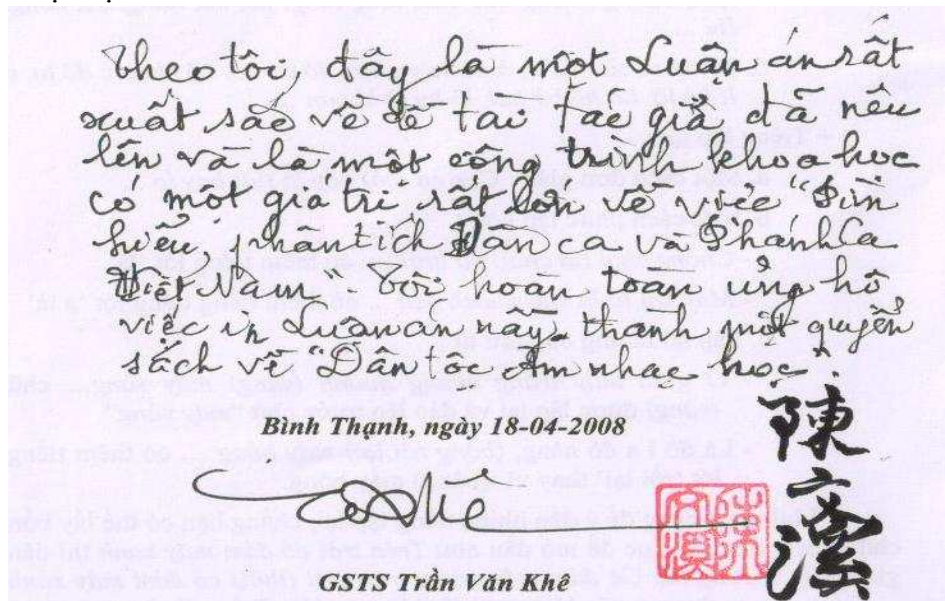 Theo tôi đây là một Luận án rất
xuất sắc về đề tài tác giả đã nêu
lên và là một công trình khoa học
có một giá trị rất lớn về việc "Tìm
hiểu, phân tích Dân ca và Thánh ca
Việt Nam". Tôi hoàn toàn ủng hộ
việc in Luận án nầy thành một quyển
sách về "Dân tộc Âm nhạc học".
Bình Thạnh, ngày 18-04-2008
GSTS Trần Văn Khê
陳文